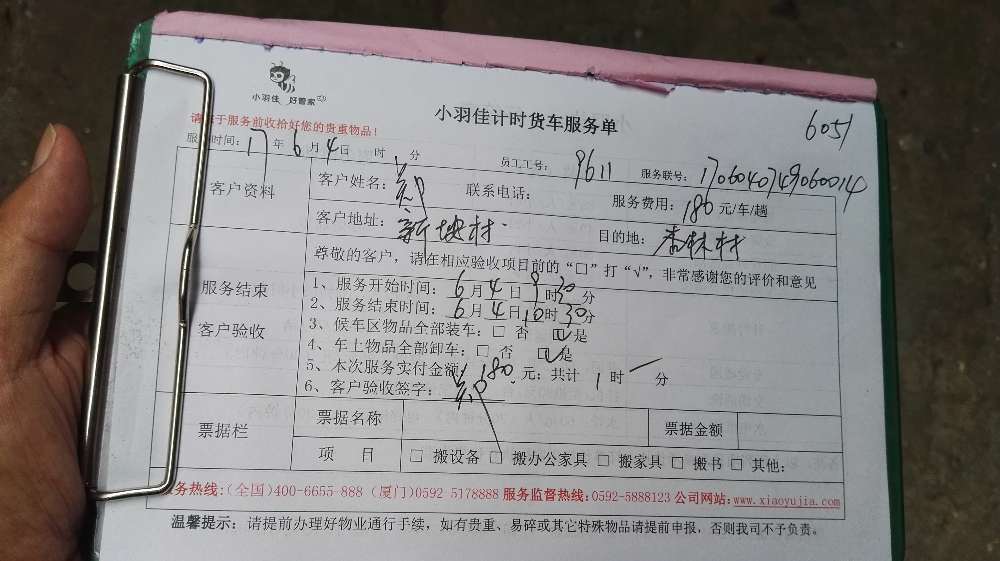 小羽佳 好管家
小羽佳计时货车服务单
6051
请于服务前收拾好您的贵重物品！
服务时间：17年6月4日 时 分 员工工号：9611 服务联号：1706040749060014
客户资料 客户姓名： 联系电话： 服务费用：180元/车/趟
客户地址：新坡村 目的地：杏林村
尊敬的客户，请在相应验收项目前的“□”打“√”，非常感谢您的评价和意见
服务结束
客户验收
1、服务开始时间：6月4日9时30分
2、服务结束时间：6月4日10时30分
3、候车区物品全部装车：□ 否 ☑是
4、车上物品全部卸车：□ 否 ☑是
5、本次服务实付金额：180元；共计 1时 一 分
6、客户验收签字：
票据栏 票据名称 票据金额
项 目 □ 搬设备 □ 搬办公家具 □ 搬家具 □ 搬书 □ 其他：
服务热线：(全国)400-6655-888 (厦门)0592 5178888 服务监督热线：0592-5888123 公司网站：www.xiaoyujia.com
温馨提示：请提前办理好物业通行手续，如有贵重、易碎或其它特殊物品请提前申报，否则我司不予负责。